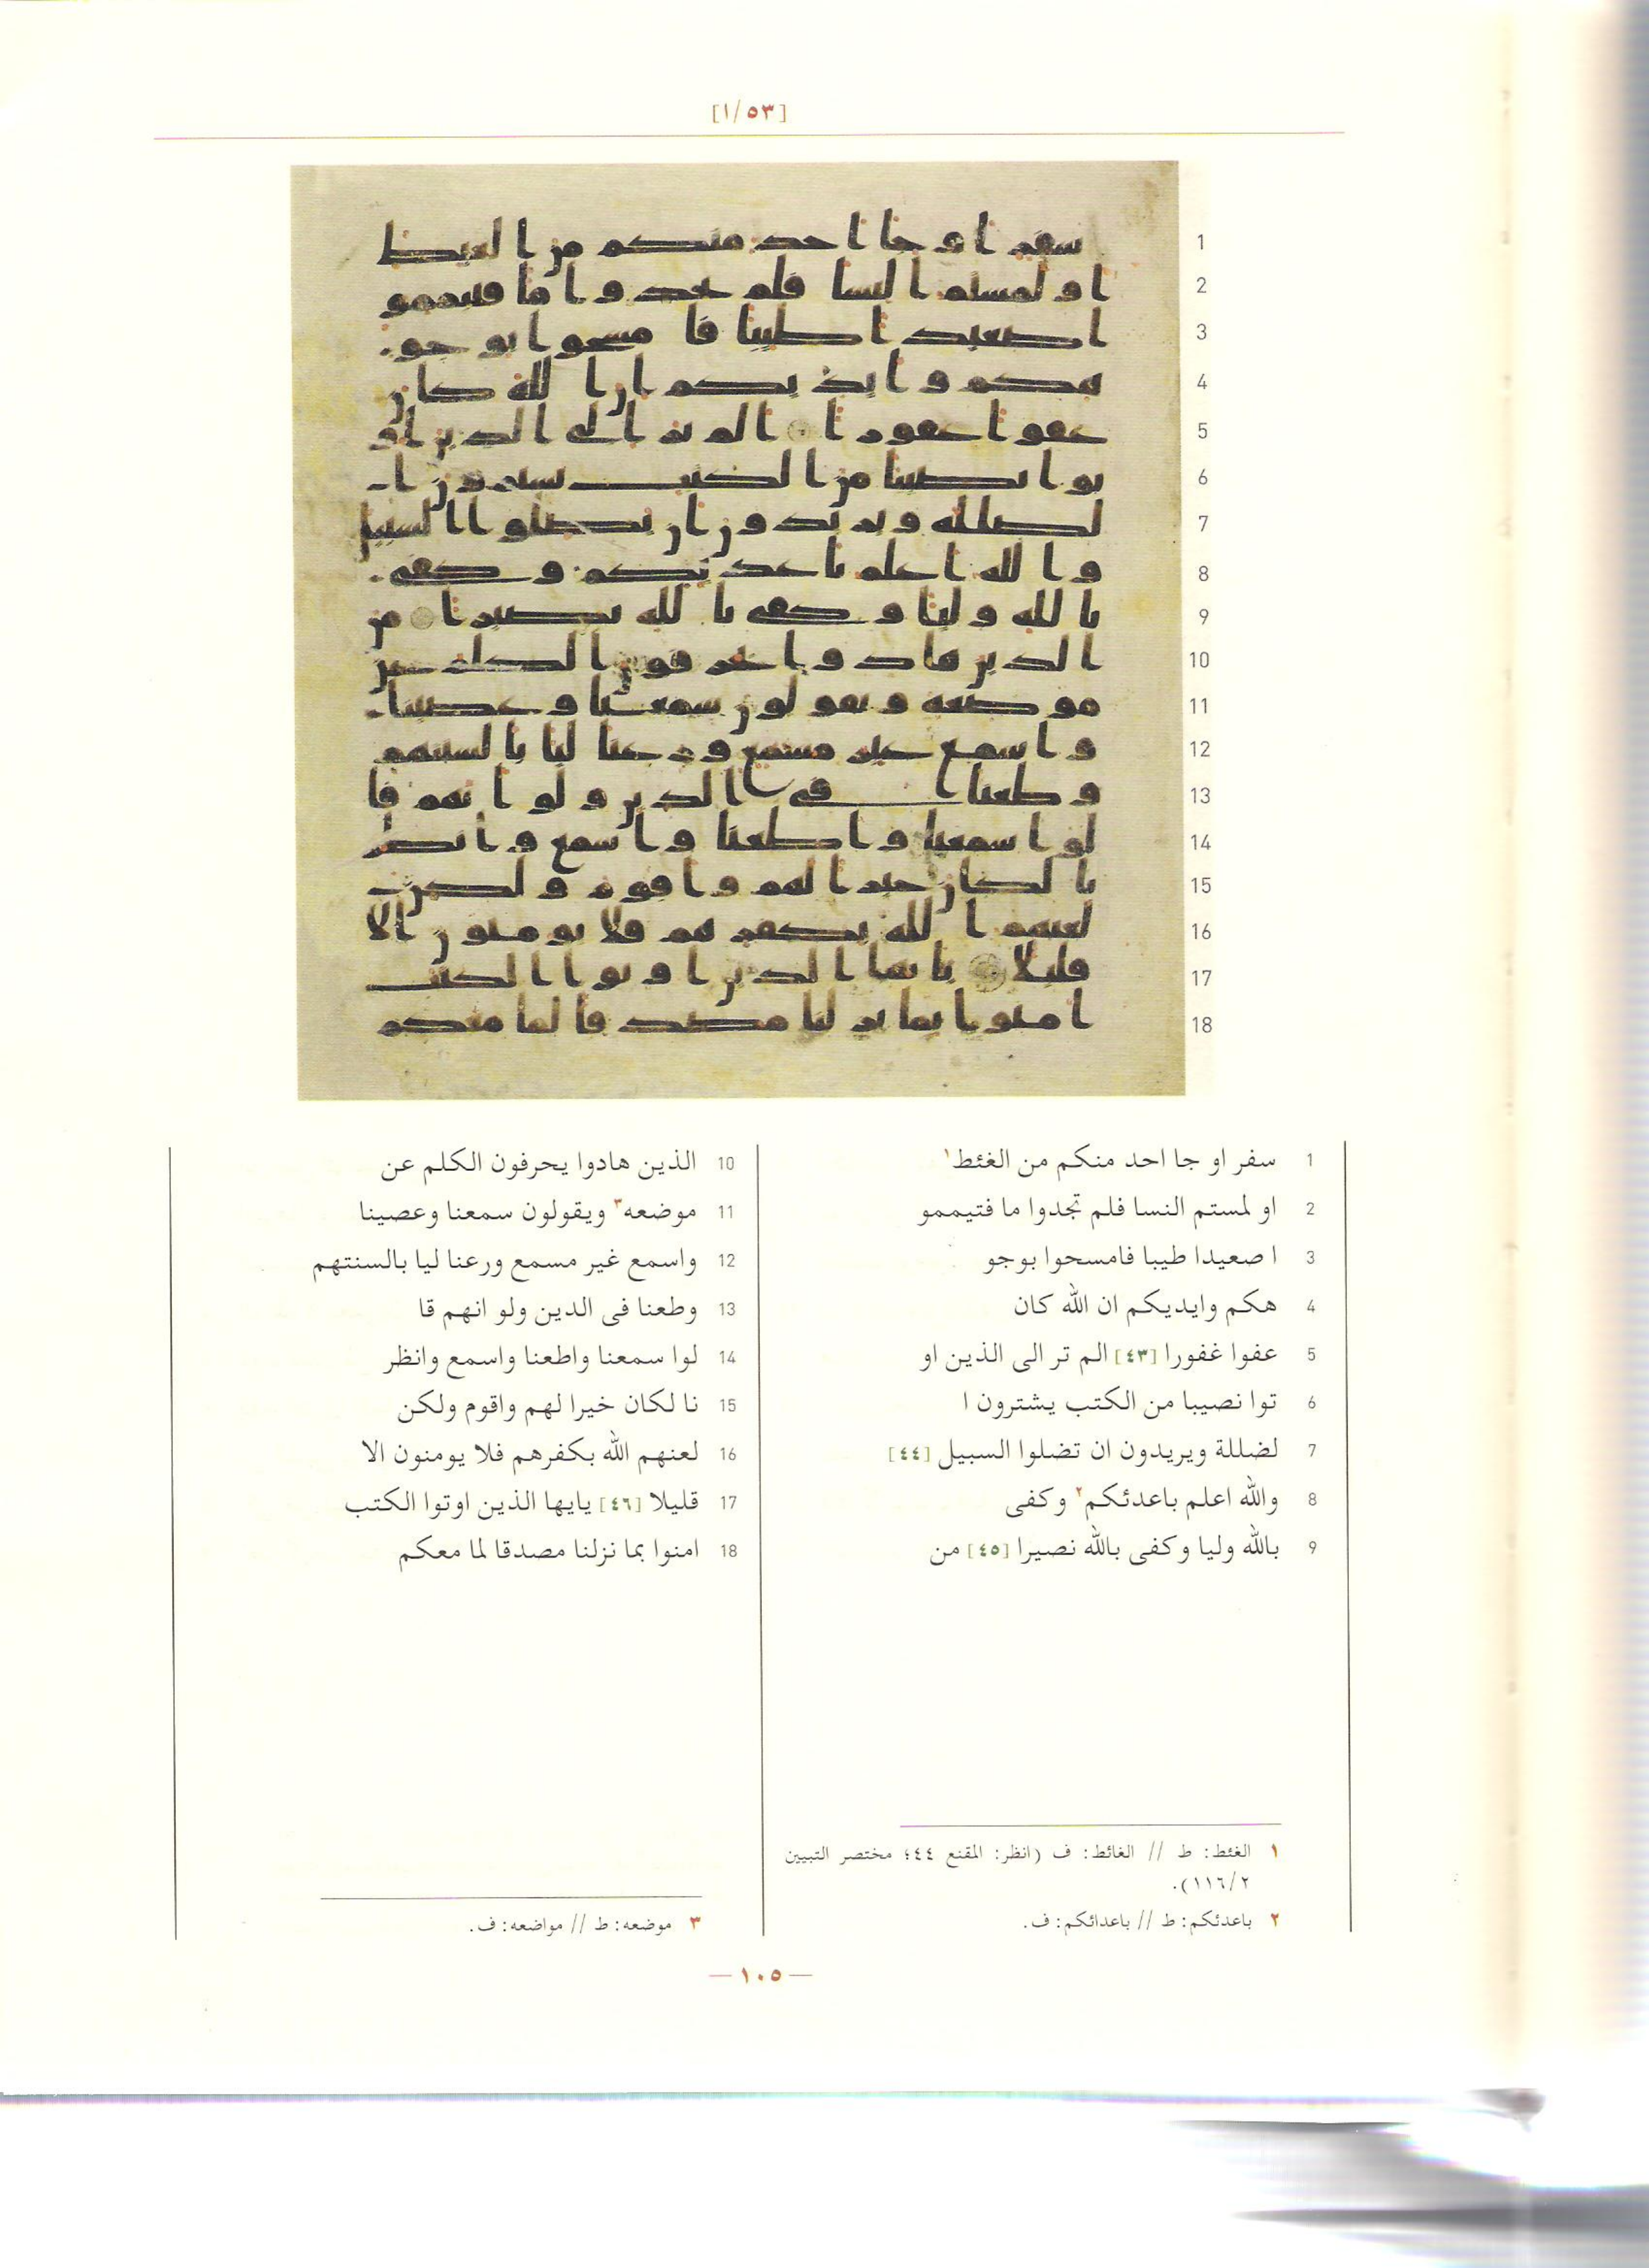 [١/٥٣]
1 سفر او جا احد منكم من الغئط١
2 او لمستم النسا فلم تجدوا ما فتيممو
3 ا صعيدا طيبا فامسحوا بوجو
4 هكم وايديكم ان الله كان
5 عفوا غفورا [٤٣] الم تر الى الذين او
6 توا نصيبا من الكتب يشترون ا
7 لضللة ويريدون ان تضلوا السبيل [٤٤]
8 والله اعلم باعدئكم٢ وكفى
9 بالله وليا وكفى بالله نصيرا [٤٥] من
10 الذين هادوا يحرفون الكلم عن
11 موضعه٣ ويقولون سمعنا وعصينا
12 واسمع غير مسمع ورعنا ليا بالسنتهم
13 وطعنا فى الدين ولو انهم قا
14 لوا سمعنا واطعنا واسمع وانظر
15 نا لكان خيرا لهم واقوم ولكن
16 لعنهم الله بكفرهم فلا يومنون الا
17 قليلا [٤٦] يايها الذين اوتوا الكتب
18 امنوا بما نزلنا مصدقا لما معكم
١ الغئط: ط // الغائط: ف (انظر: المقنع ٤٤؛ مختصر التبيين
٢/١١٦).
٢ باعدئكم: ط // باعدائكم: ف.
٣ موضعه: ط // مواضعه: ف.
— ١٠٥ —